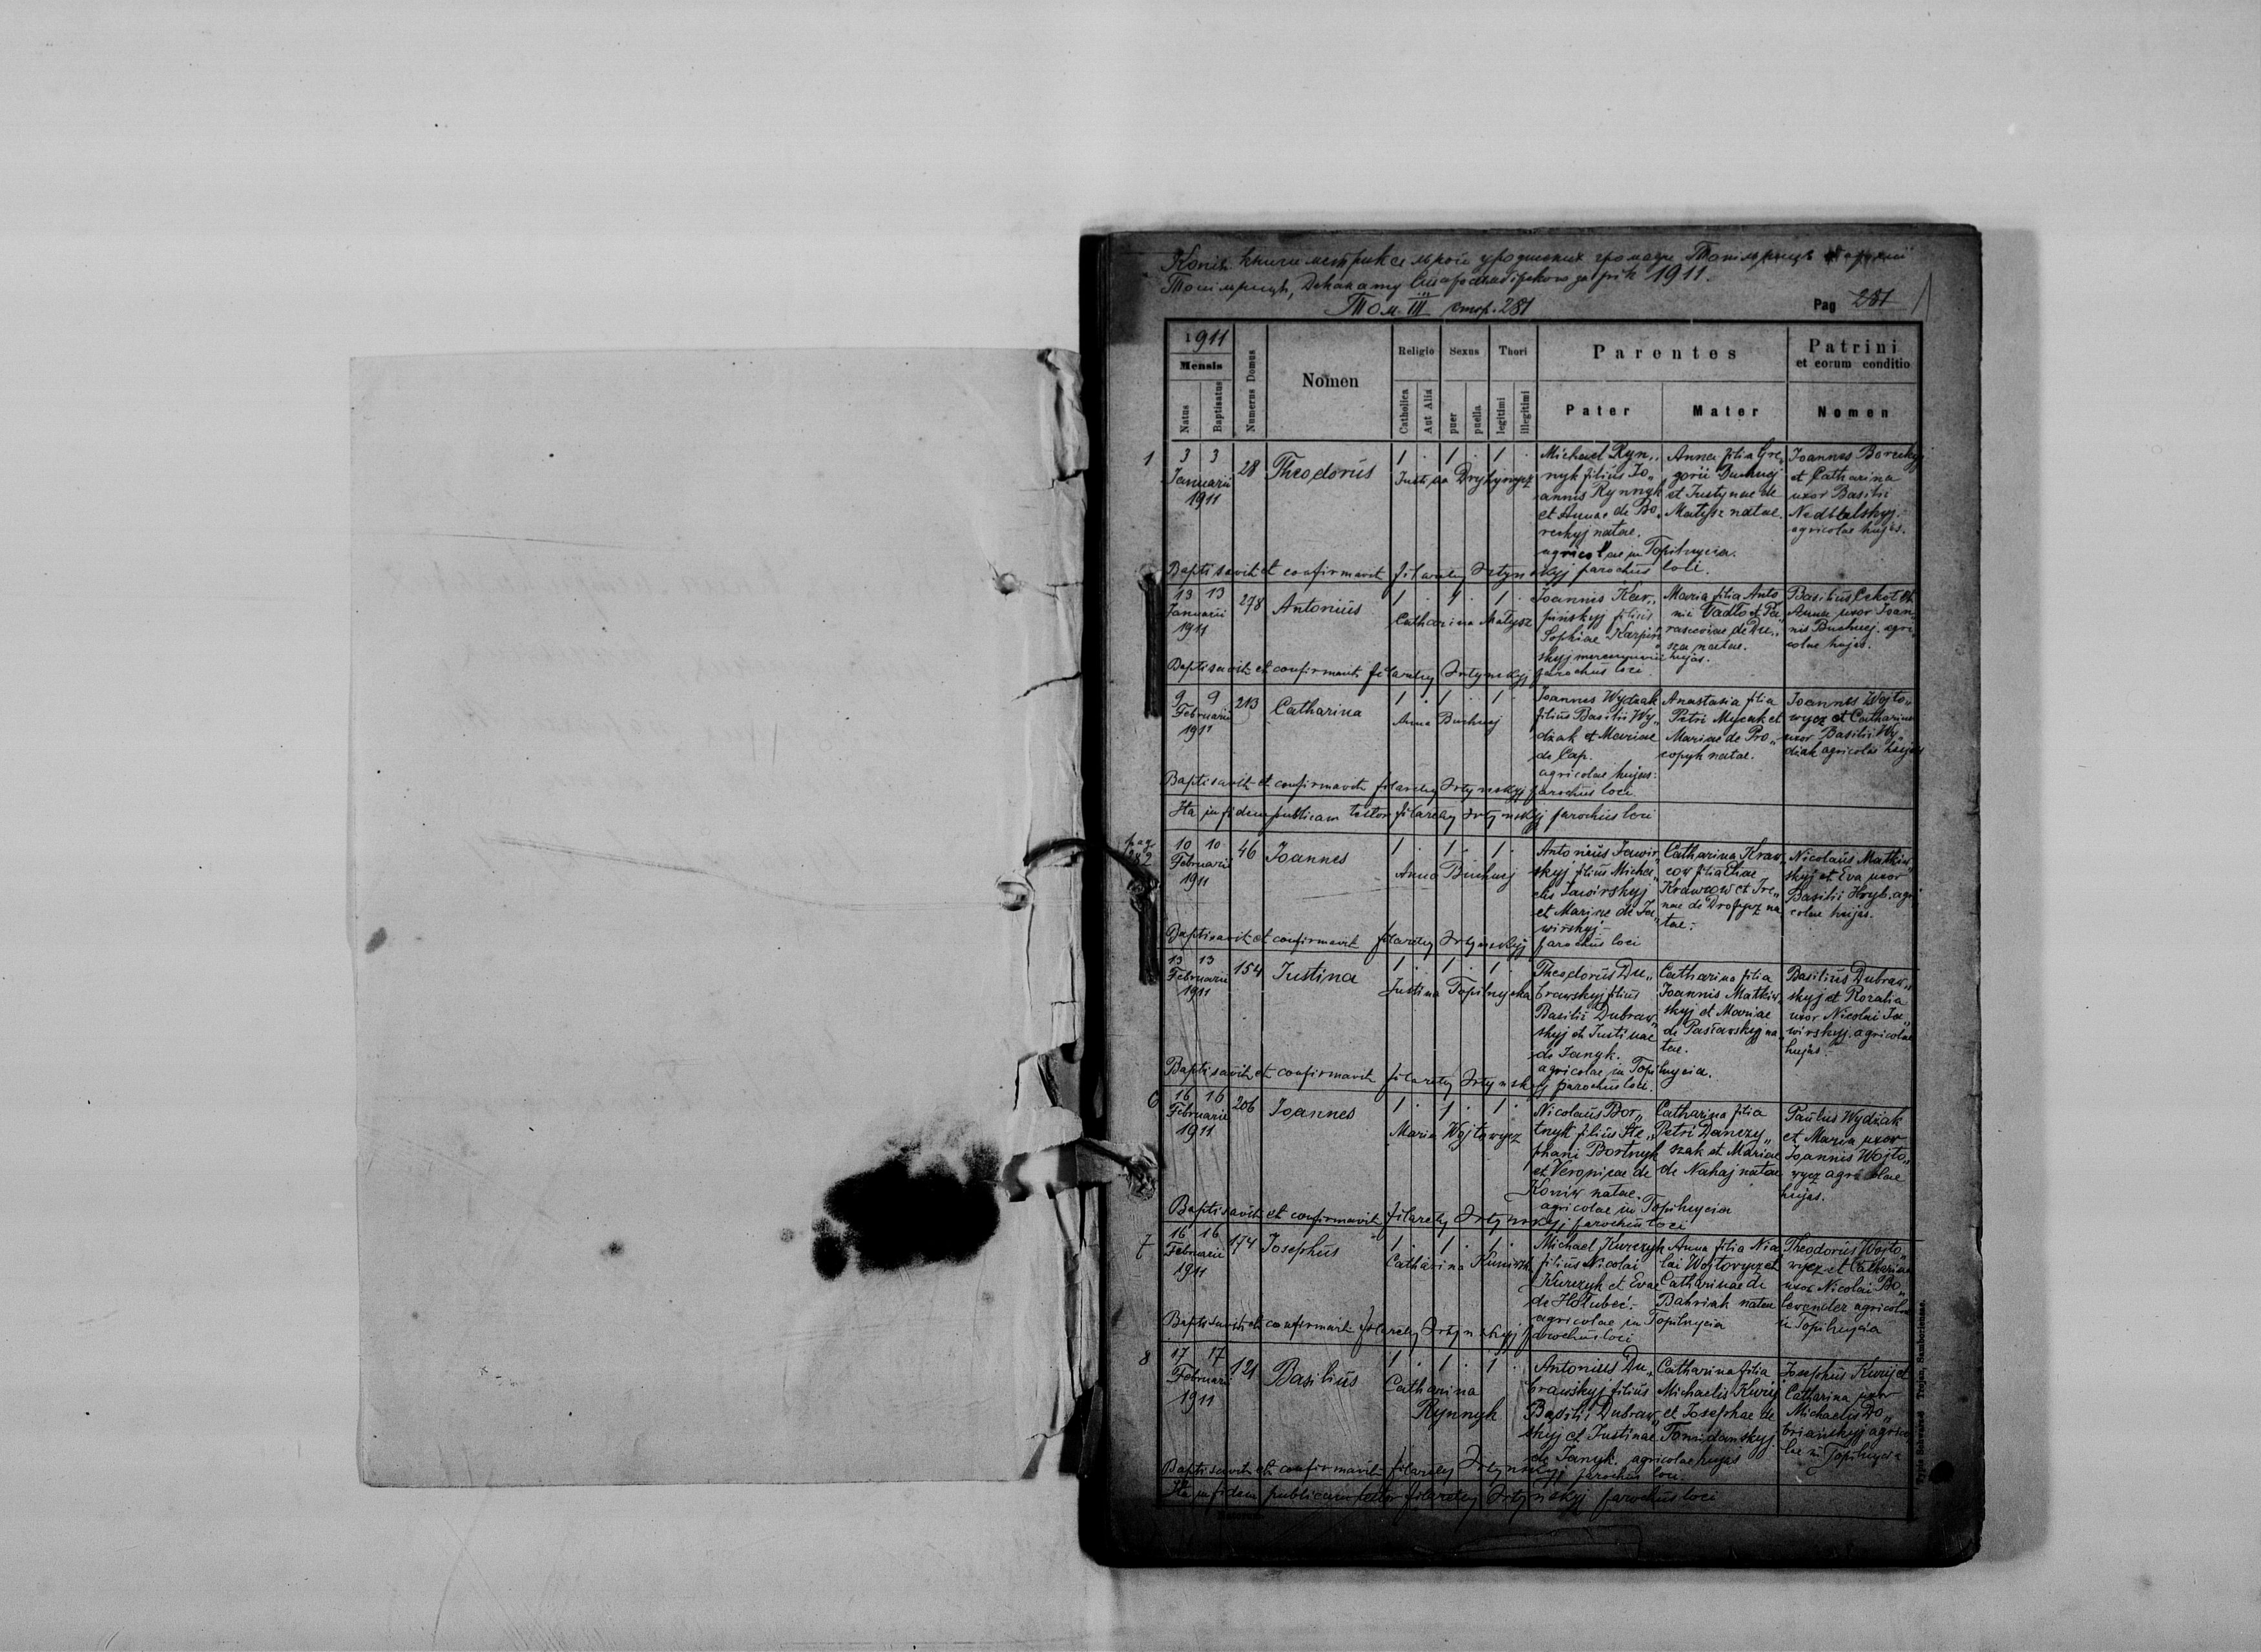 Копія книги метрикальної уроджених громади Топільниця парохії
Топільниця, Деканату Старосамбірского за рік 1911.
Том III стор. 281
Pag 281
1911
Mensis
Natus
Baptisatus
Numerus Domus
Nomen
Religio
Catholica
Aut Alia
Sexus
puer
puella
Thori
legitimi
illegitimi
Parentes
Pater
Mater
Patrini
et eorum conditio
Nomen
1
3 3
Januarii
1911
28
Theodorus
1 . 1 . 1 .
Justina Drohymycz
Michael Ryn„
nyk filius Jo„
annis Rynnyk
et Annae de Bo„
reckyj natae.
agricolae in Topilnycia.
Anna filia Gre„
gorii Buchnej
et Justynae de
Matysz natae.
Joannes Boreckyj
et Catharina
uxor Basilii
Nedilalskyj.
agricolae hujas.
Baptisavit et confirmavit filarety Jrtynskyj parochus loci.
13 13
Januarii
1911
278
Antonius
1 . 1 . 1 .
Catharina Matysz
Joannis Kar„
pinskyj filius
Sophiae Karpin„
skyj mercenarii hujas.
Maria filia Anto
nii Vadlo et Pa„
rasceviae de Du„
sza natae.
Basilius Cekot et
Anna uxor Joan„
nis Buchnej. agri„
colae hujas.
Baptisavit et confirmavit filarety Jrtynskyj parochus loci
9 9
Februarii
1911
213
Catharina
1 . 1 . 1 .
Anna Buchnej
Joannes Wydzak
filius Basilii Wy„
dzak et Mariae
de Cap.
agricolae hujas.
Anastasia filia
Petri Mycak et
Mariae de Pro„
copyk natae.
Joannes Wojto„
wycz et Catharina
uxor Basilii Wy„
dzak agricolae hujas
Baptisavit et confirmavit filarety Jrtynskyj parochus loci.
Ita in fidem publicam testor filarety Jrtynskyj parochus loci
pag
282
10 10
Februarii
1911
46
Joannes
1 . 1 . 1 .
Anna Buchnej
Antonius Jawir„
skyj filius Micha„
elis Jawirskyj
et Marine de Ja„
wirskyj
Catharina Kraw„
cow filia Eliae
Krawcow et Ire„
nae de Dropycz na
tae.
Nicolaus Matkiw„
skyj et Eva uxor
Basilii Hryb. agri
colae hujas.
Baptisavit et confirmavit filarety Jrtynskyj parochus loci
13 13
Februarii
1911
154
Justina
1 . 1 . 1 .
Justina Topilnycka
Theodorus Du„
brawskyj filius
Basilii Dubraw„
skyj et Justinae
de Janyk.
agricolae in Topilnycia.
Catharina filia
Joannis Matkiw„
skyj et Mariae
de Paslawskyj na„
tae.
Basilius Dubraw„
skyj et Rozalia
uxor Nicolai Ja„
wirskyj. agricolae
hujas.
Baptisavit et confirmavit filarety Jrtynskyj parochus loci.
6
16 16
Februarii
1911
206
Joannes
1 . 1 . 1 .
Maria Wojtowycz
Nicolaus Bor„
tnyk filius Ste„
phani Bortnyk
et Veronicae de
Koniw natae.
agricolae in Topilnycia
Catharina filia
Petri Danczy„
szak et Mariae
de Nahaj natae
Paulus Wydzak
et Maria uxor
Joannis Wojto„
wycz agricolae
hujas.
Baptisavit et confirmavit filarety Jrtynskyj parochus loci
7
16 16
Februarii
1911
174
Josephus
1 . 1 . 1 .
Catharina
Michael Kurczyk
filius Nicolai
Kurczyk et Evae
de Holubec.
agricolae in Topilnycia
Anna filia Nico
lai Wojtowycz et
Catharinae de
Bahriak natae
Theodorus Wojto„
wycz et Catharina
uxor Nicolai
agricolae
in Topilnycia
Baptisavit et confirmavit filarety Jrtynskyj parochus loci
8
17 17
Februarii
1911
121
Basilius
1 . 1 . 1 .
Catharina
Rynnyk
Antonius Du„
brawskyj filius
Basilii Dubraw„
skyj et Justinae
de Janyk. agricolae hujas
Catharina filia
Michaelis Kurij
et Josephae de
Tomidanskyj.
Josephus Kurij et
Catharina uxor
Michaelis Do„
brianskyj agrico„
lae in Topilnycia
Baptisavit et confirmavit filarety Jrtynskyj parochus loci.
Ita in fidem publicam testor filarety Jrtynskyj parochus loci
Typis Schwarz et Trojan, Samboriense.